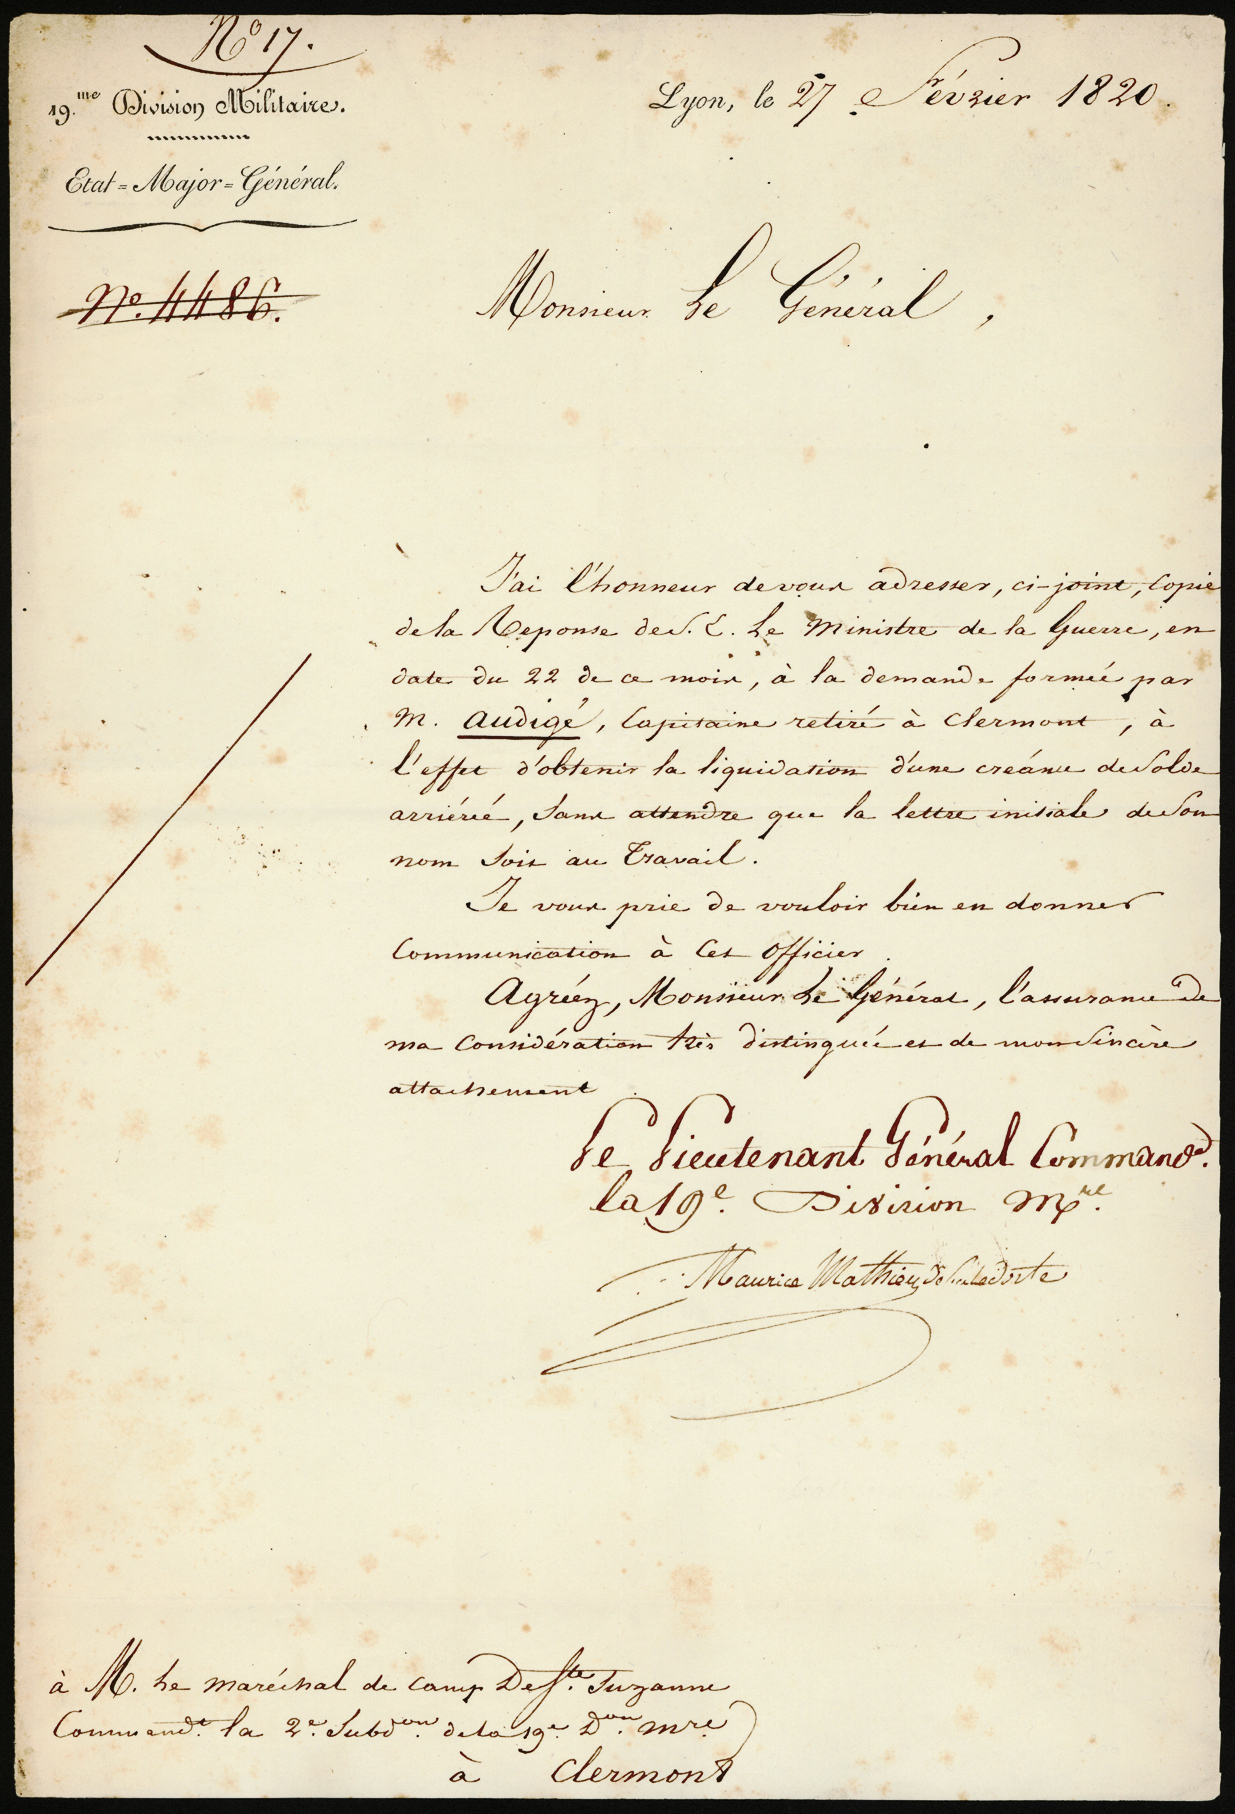 N.o 17.
19.me Division Militaire.
Etat=Major=Général.
N.o 4486.
Lyon, le 27 Février 1820.
Monsieur Le Général,
J'ai l'honneur de vous adresser, ci-joint, Copie
de la Reponse de S. E. Le Ministre de la Guerre, en
date du 22 de ce mois, à la demande formée par
M. Audigé, Capitaine retiré à Clermont, à
l'effet d'obtenir la liquidation d'une créance de Solde
arriérée, Sans attendre que la lettre initiale de Son
nom Soit au Travail.
Je vous prie de vouloir bien en donner
Communication à Cet Officier.
Agréez, Monsieur Le Général, l'assurance de
ma Considération très distinguée et de mon Sincère
attachement.
Le Lieutenant Général Command.t
la 19.e Division M.re
Maurice Mathieu
à M. Le maréchal de camp De S.te Suzanne
Command.t la 2.e Subd.on de la 19.e D.on M.re
à Clermont